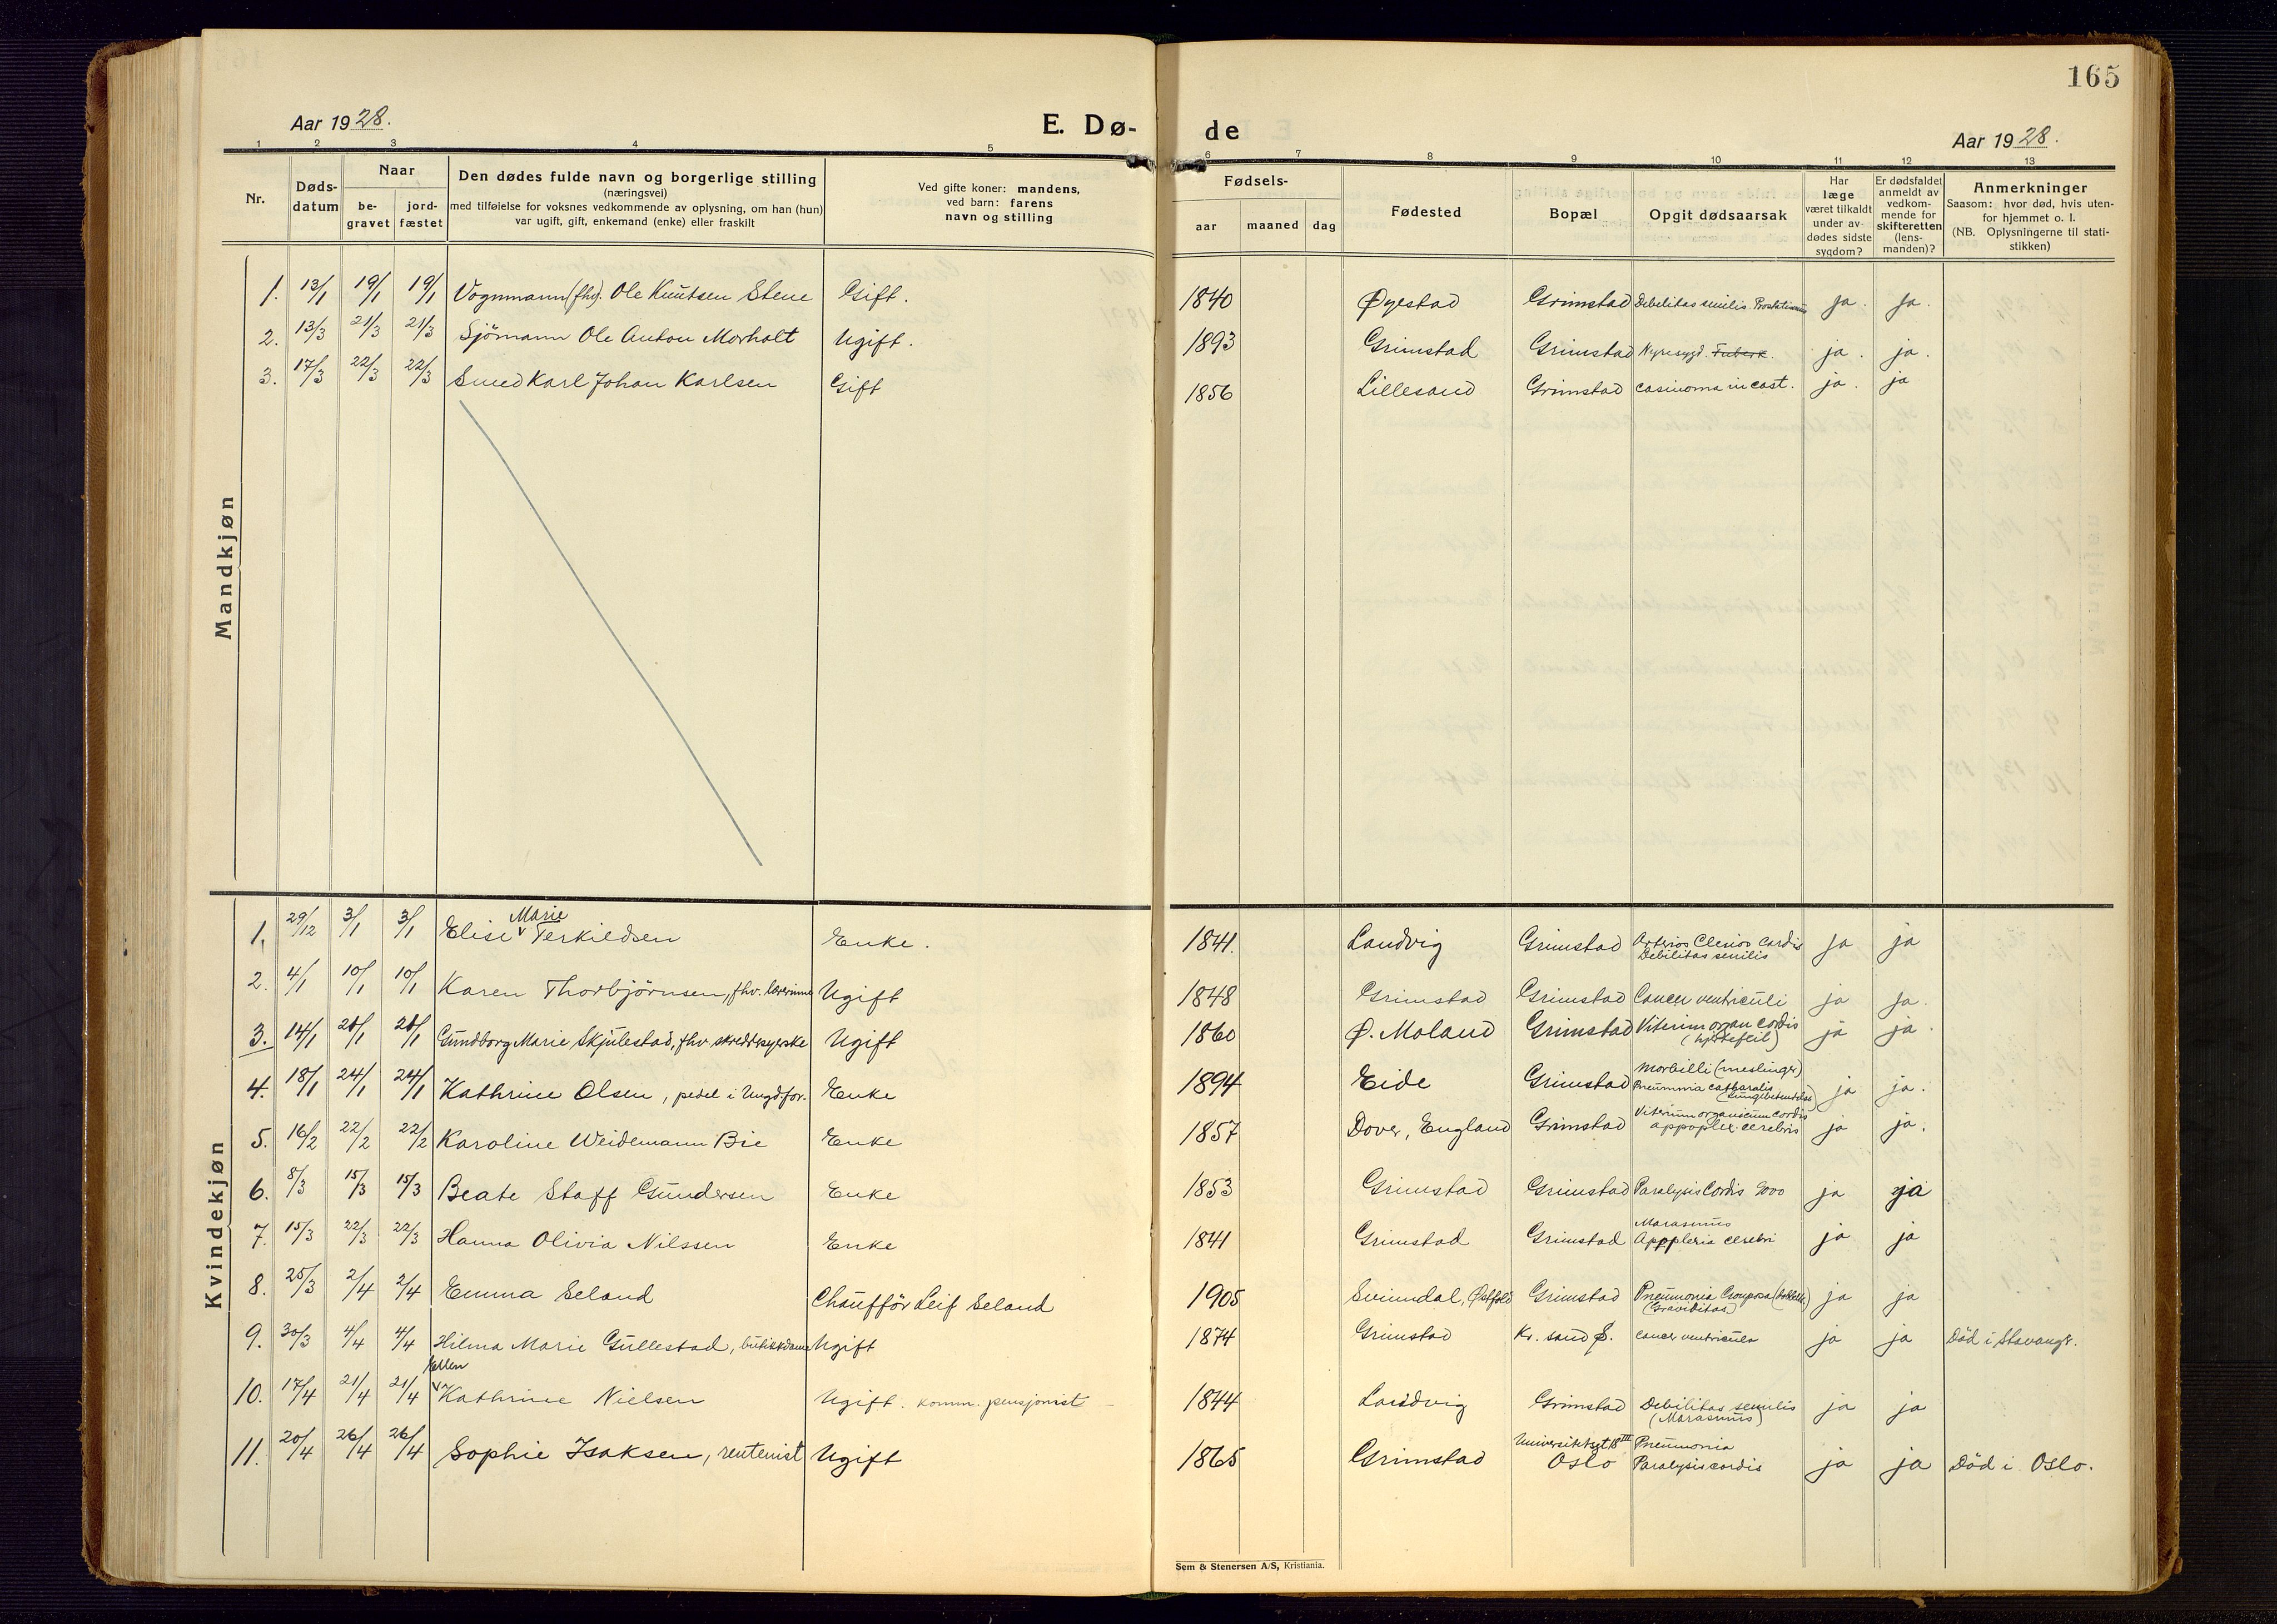 165
Aar 1928.
E. Dø-
de
Aar 1928.
1 2 3 4 5 6 7 8 9 10 11 12 13
Nr.
Døds-
datum
Naar
be-
gravet
jord-
fæstet
Den dødes fulde navn og borgerlige stilling
(næringsvei)
med tilføielse for voksnes vedkommende av oplysning, om han (hun)
var ugift, gift, enkemand (enke) eller fraskilt
Ved gifte koner: mandens,
ved barn: farens
navn og stilling
Fødsels-
aar maaned dag
Fødested
Bopæl
Opgit dødsaarsak
Har
læge
været tilkaldt
under av-
dødes sidste
sygdom?
Er dødsfaldet
anmeldt av
vedkom-
mende for
skifteretten
(lens-
manden)?
Anmerkninger
Saasom: hvor død, hvis uten-
for hjemmet o. l.
(NB. Oplysningerne til stati-
stikken)
Mandkjøn
1. 13/1 19/1 19/1 Vognmann (fhv). Ole Knutsen Stene Gift. 1840 Øyestad Grimstad Debilitas senilis. ja. ja.
2. 13/3 21/3 21/3 Sjömann Ole Anton Morholt Ugift. 1893 Grimstad Grimstad Nyresygd. Tuberk. ja. ja.
3. 17/3 22/3 22/3 Smed Karl Johan Karlsen Gift 1856 Lillesand Grimstad casinoma in cast. ja. ja
Kvindekjøn
Marie
1. 29/12 3/1 3/1 Elise Terkildsen Enke. 1841. Landvig Grimstad Arterios Clerios Cardis ja ja
Debilitas senilis
2. 4/1 10/1 10/1 Karen Thorbjörnsen, fhv. lærerinne Ugift 1848 Grimstad Grimstad Cancer ventriculi ja ja.
3. 14/1 20/1 20/1 Gundborg Marie Skjulestad, fhv Ugift 1860 Ø. Moland Grimstad Viterim organ cordis ja ja.
(hjertefeil)
Morbilli (meslinger)
4. 18/1 24/1 24/1 Kathrine Olsen, pedel i Ungd.for. Enke 1894 Eide Grimstad Pneumonia catharalis ja ja.
(Lungebetendelse)
Viterium organicum cordis
5. 16/2 22/2 22/2 Karoline Weidemann Bie Enke 1857 Dover, England Grimstad appoplex. cerebris ja ja.
6. 8/3 15/3 15/3 Beate Staff Gundersen Enke 1853 Grimstad Grimstad Paralysis Cordis ja ja
Marasmus
7. 15/3 22/3 22/3 Hanna Olivia Nilssen Enke 1841 Grimstad Grimstad Apoplexia cerebri ja ja
8. 25/3 2/4 2/4 Emma Seland Chaufför Leif Seland 1905 Svinndal, Østfold Grimstad Pneumonia Crouposa ja ja
(Graviditas)
9. 30/3 4/4 4/4 Hilma Marie Gullestad, butikkdame Ugift 1874 Grimstad Kr. sand S. cancer ventricula ja ja Död i Stavanger.
Ellen
10. 17/4 21/4 21/4 Kathrine Nielsen Ugift. komm. pensjonist 1844 Landvig Grimstad Debilitas senilis ja ja
(Marasmus)
Universitetsgt 18 III Pneumonia
11. 20/4 26/4 26/4 Sophie Isaksen, rentenist Ugift 1865 Grimstad Oslo Paralysis cordis ja ja Död i Oslo.
Sem & Stenersen A/S, Kristiania.